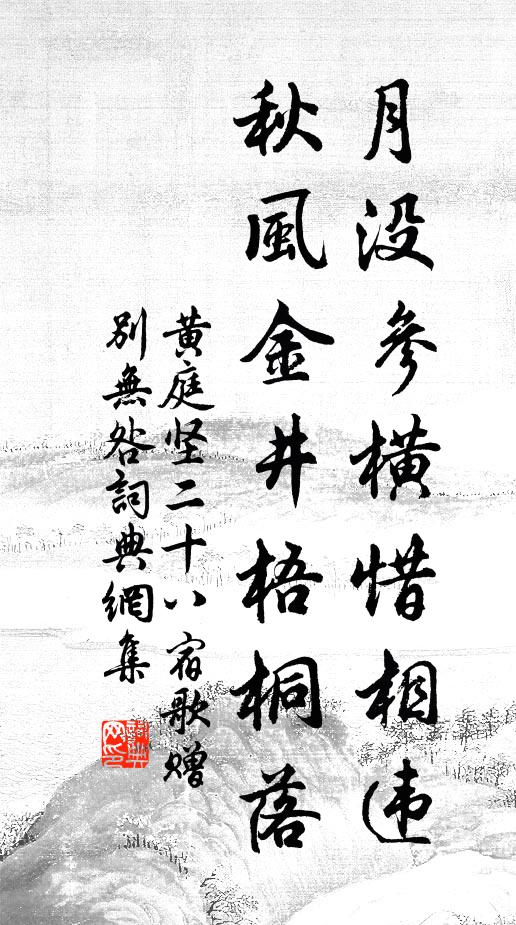 月没參橫惜相违
秋風金井梧桐落
黄庭坚二十八宿歌赠
别無咎詞典網集